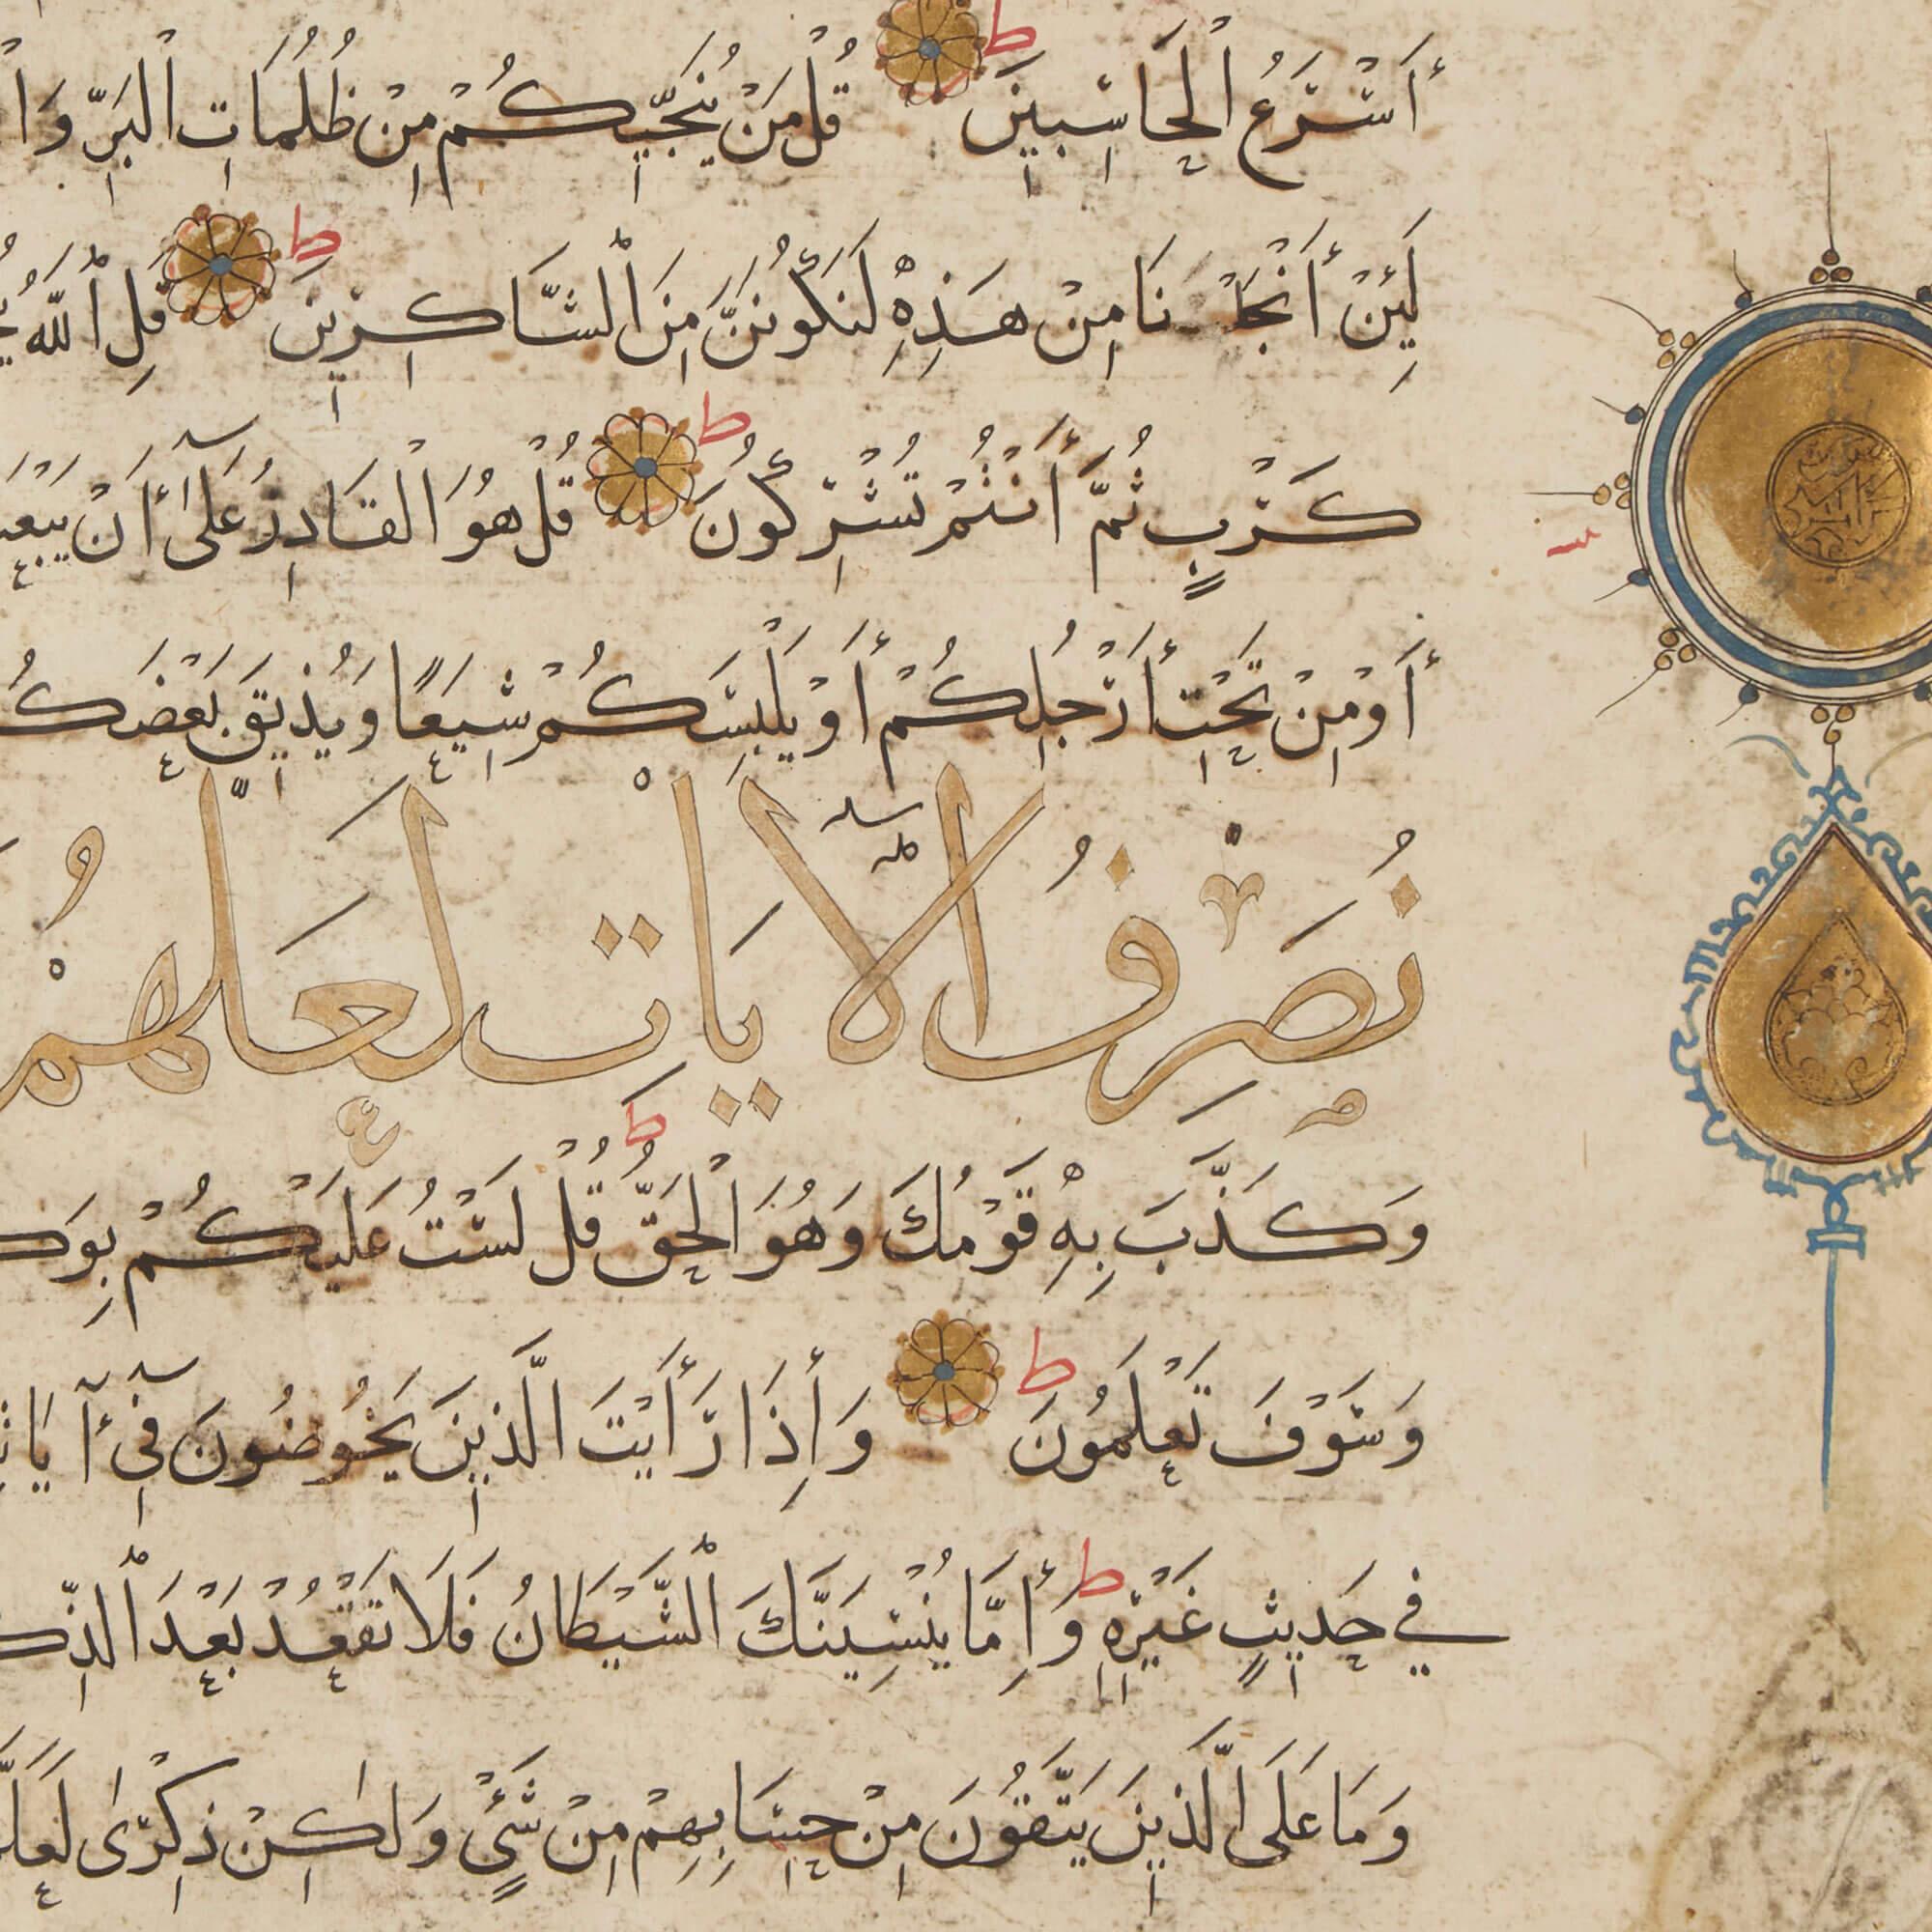 أَسْرَعُ الْحَاسِبِينَ ط قُلْ مَنْ يُنَجِّيكُمْ مِنْ ظُلُمَاتِ الْبَرِّ وَا
لَئِنْ أَنْجَانَا مِنْ هَذِهِ لَنَكُونَنَّ مِنَ الشَّاكِرِينَ ط قُلِ اللَّهُ
كَرْبٍ ثُمَّ أَنْتُمْ تُشْرِكُونَ ط قُلْ هُوَ الْقَادِرُ عَلَىٰٓ أَنْ يَبْعَ
أَوْ مِنْ تَحْتِ أَرْجُلِكُمْ أَوْ يَلْبِسَكُمْ شِيَعًا وَيُذِيقَ بَعْضَكُ
نُصَرِّفُ الْآيَاتِ لَعَلَّهُمْ
وَكَذَّبَ بِهِ قَوْمُكَ وَهُوَ الْحَقُّ ط قُلْ لَسْتُ عَلَيْكُمْ بِوَكِ
وَسَوْفَ تَعْلَمُونَ ط وَإِذَا رَأَيْتَ الَّذِينَ يَخُوضُونَ فِيٓ آيَاتِ
فِي حَدِيثٍ غَيْرِهِ ط وَإِمَّا يُنْسِيَنَّكَ الشَّيْطَانُ فَلَا تَقْعُدْ بَعْدَ الذِّكْ
وَمَا عَلَى الَّذِينَ يَتَّقُونَ مِنْ حِسَابِهِمْ مِنْ شَيْءٍ وَلَٰكِنْ ذِكْرَىٰ لَعَلَّ